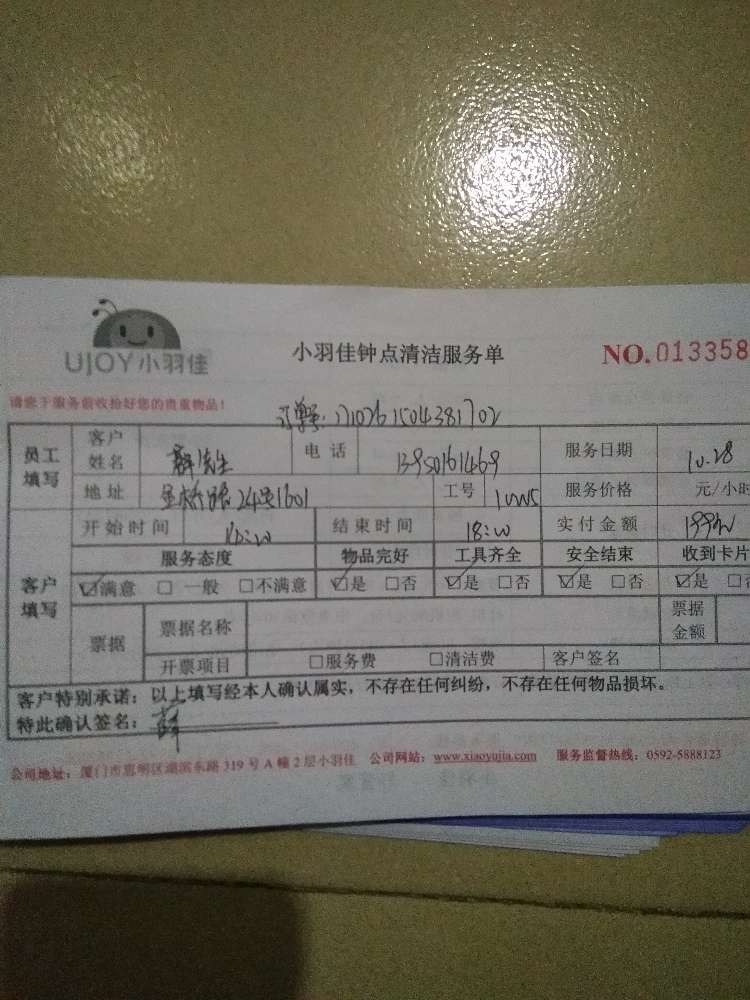 UJOY小羽佳
小羽佳钟点清洁服务单
NO.013358
请您于服务前收拾好您的贵重物品!
订单号:1710261504381702
员工填写 客户姓名 薛先生 电话 13950161469 服务日期 10.28
地址 24号1601 工号 服务价格 元/小时
客户填写 开始时间 结束时间 18:00 实付金额
服务态度 物品完好 工具齐全 安全结束 收到卡片
☑满意 □一般 □不满意 ☑是 □否 ☑是 □否 ☑是 □否 ☑是 □否
票据 票据名称 票据金额
开票项目 □服务费 □清洁费 客户签名
客户特别承诺:以上填写经本人确认属实,不存在任何纠纷,不存在任何物品损坏。
特此确认签名:薛
公司地址:厦门市思明区湖滨东路319号A幢2层小羽佳 公司网站:www.xiaoyujia.com 服务监督热线:0592-5888123